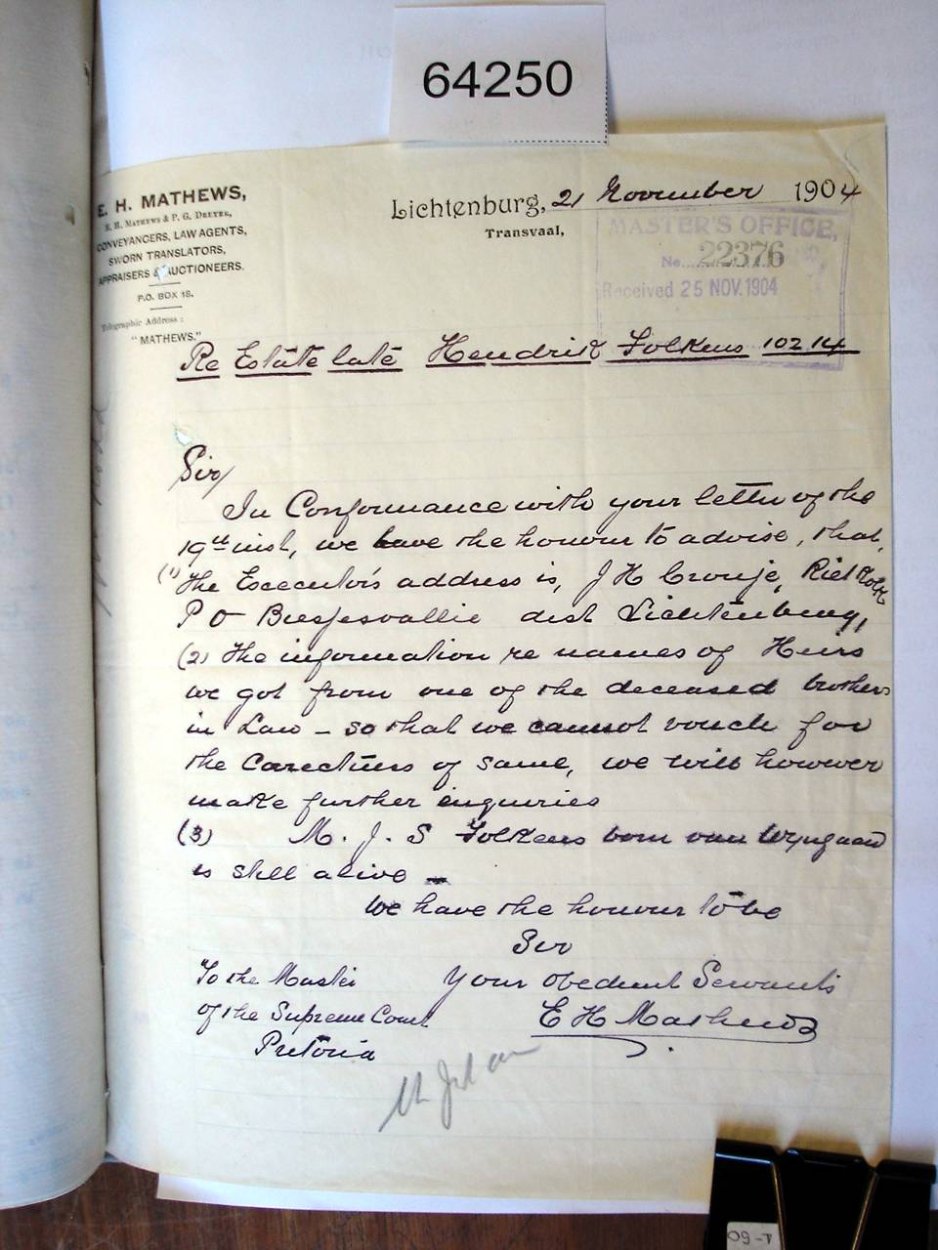 64250
E. H. MATHEWS,
E. H. MATHEWS & P. G. DREYER,
CONVEYANCERS, LAW AGENTS,
SWORN TRANSLATORS,
APPRAISERS & AUCTIONEERS.
P.O. BOX 18.
Telegraphic Address:
"MATHEWS."
Lichtenburg, 21 November 1904
Transvaal,
MASTER'S OFFICE,
No. 22376
Received 25 NOV. 1904
Re Estate late Hendrik Folkens 10214
Sir/
In Conformance with your letter of the
19th inst, we have the honour to advise, that,
(1) The Executor's address is, J H Cronje, Rietkolk
P O Biesjesvallie dist Lichtenburg,
(2) The information re names of Heirs
we got from one of the deceased brothers
in Law - so that we cannot vouch for
the Corectness of same, we will however
make further enquiries
(3) M. J. S Folkens born van Wyngaard
is still alive -
We have the honour to be
Sir
To the Master Your obedient Servants
of the Supreme Court E H Mathews
Pretoria